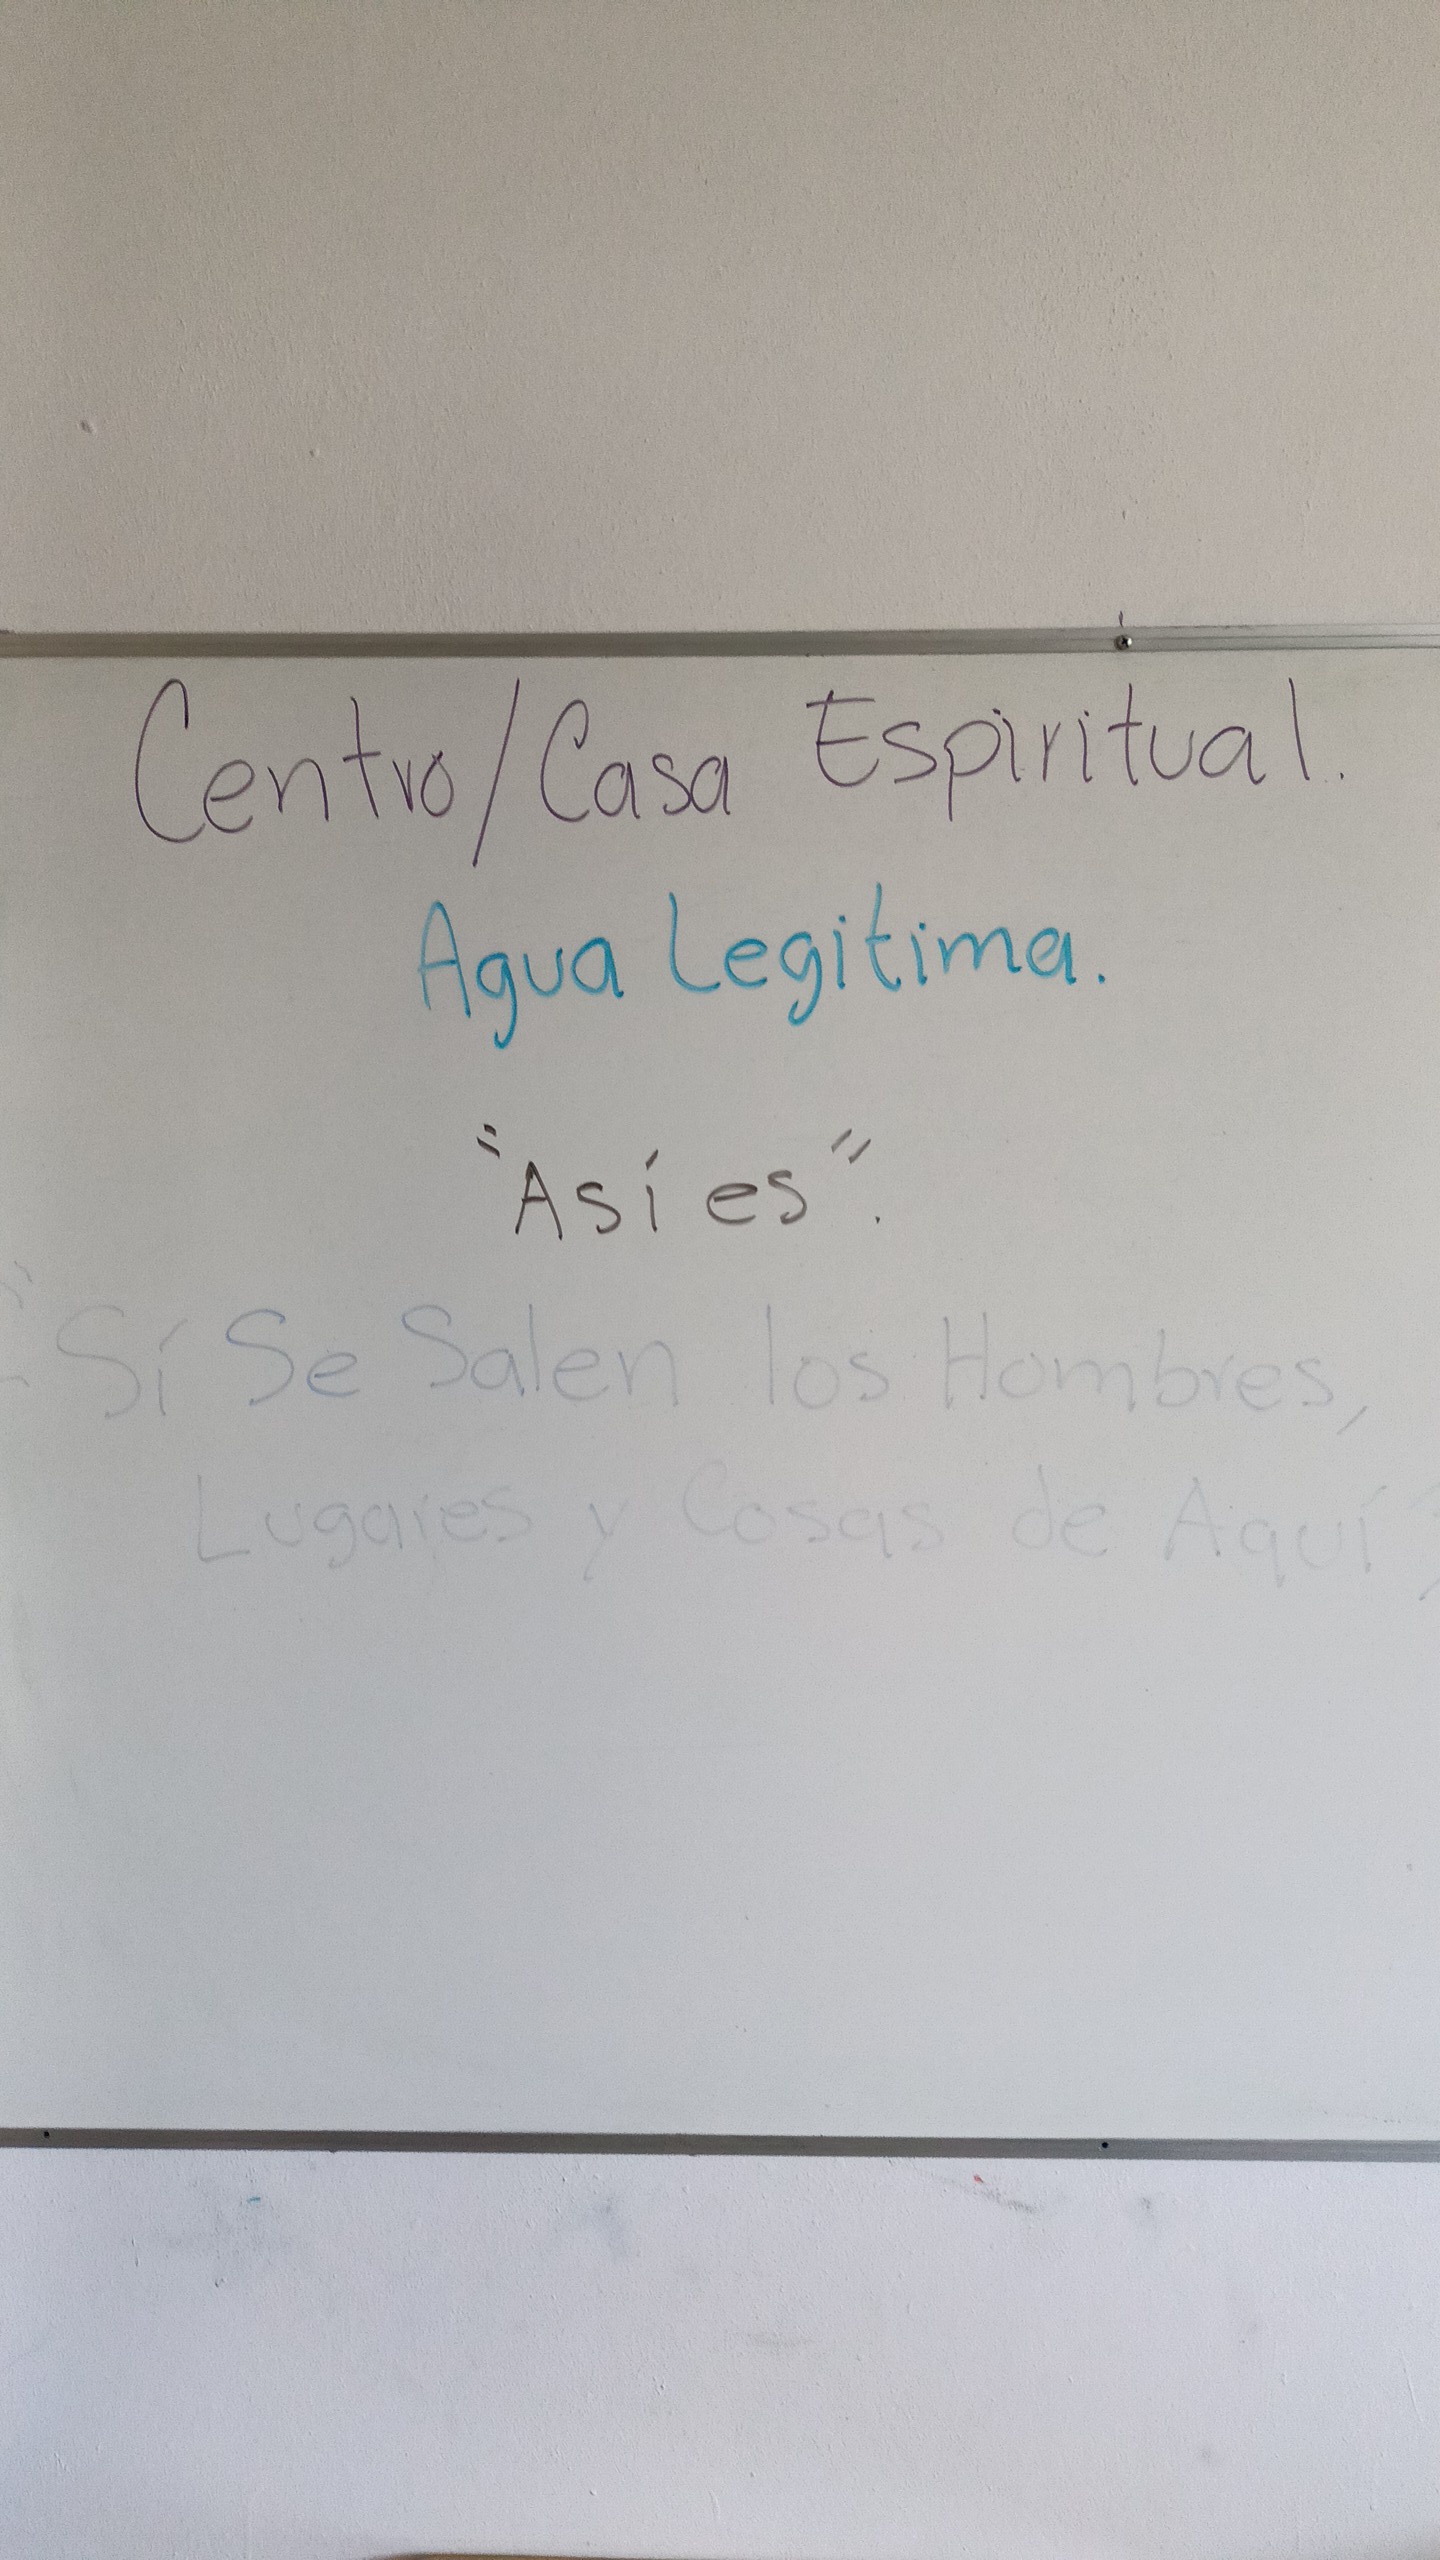 Centro/Casa Espiritual.
Agua Legitima.
"Así es".
"Sí Se Salen los Hombres,
Lugares y Cosas de Aquí